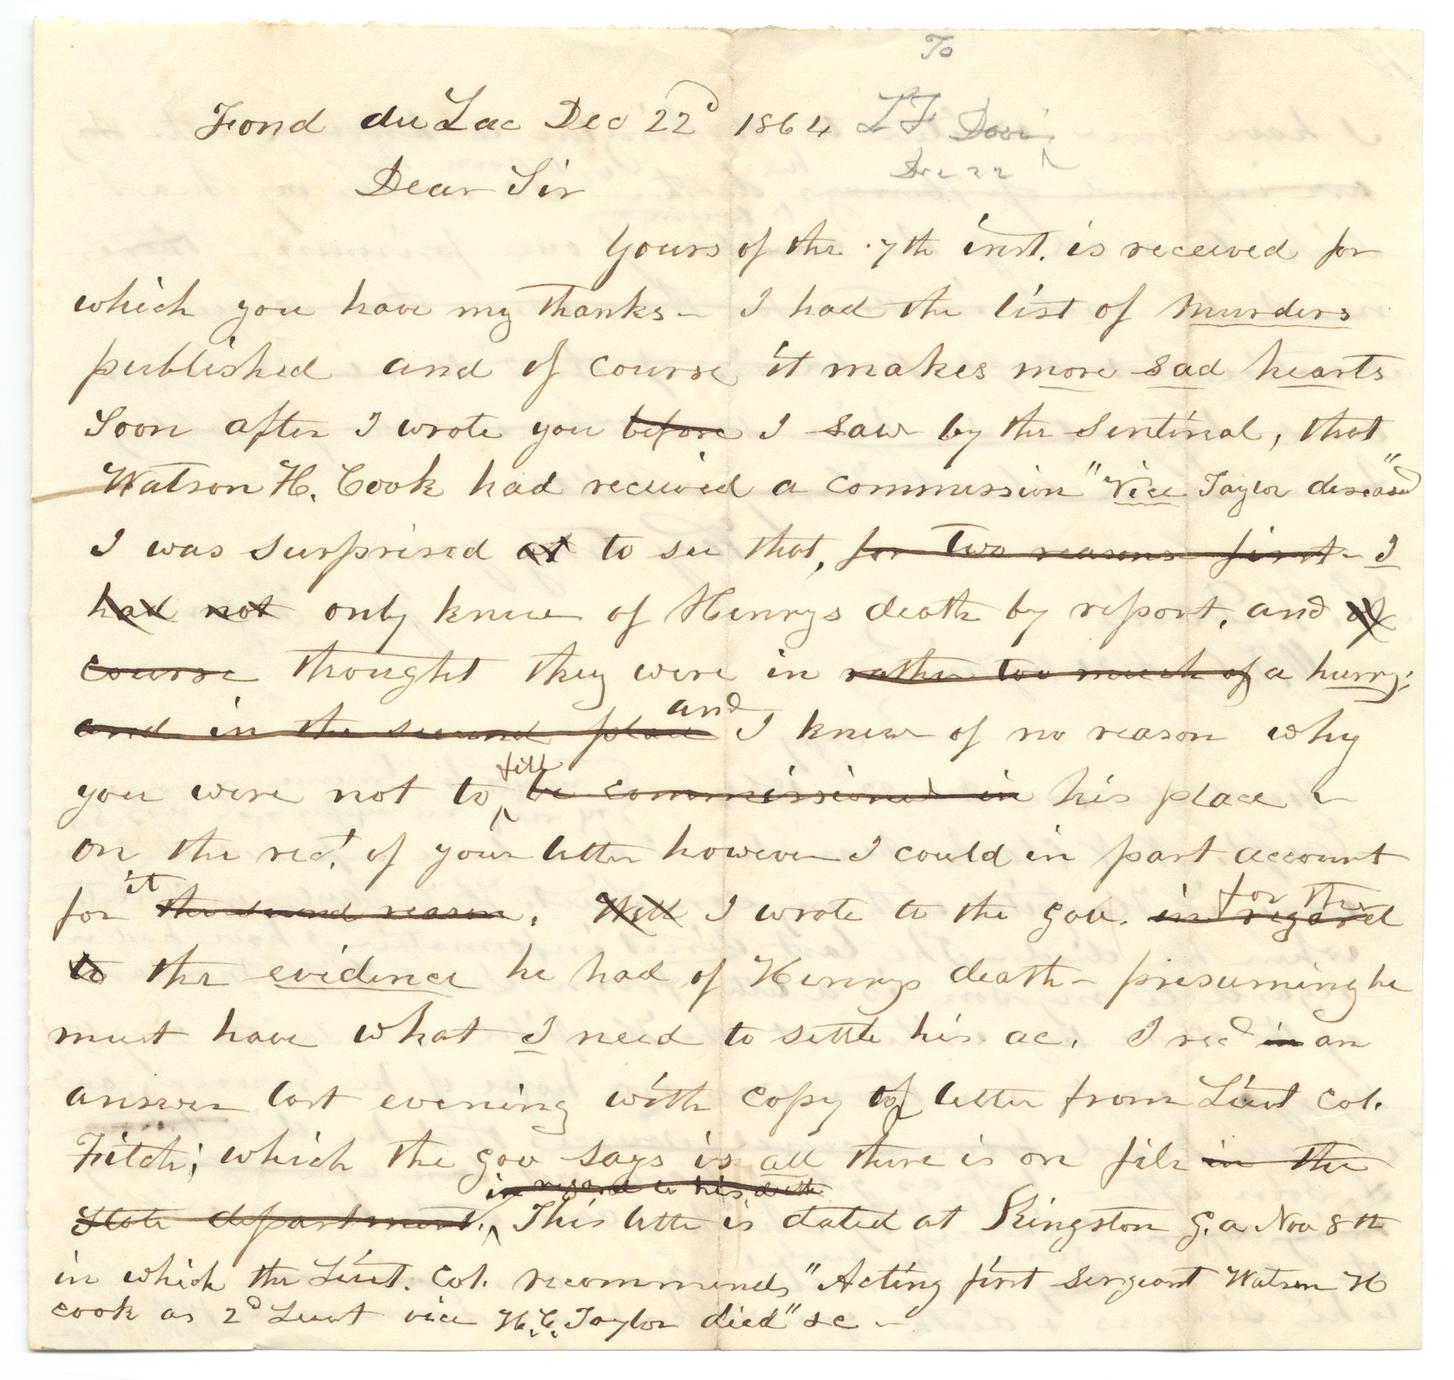 To
Fond du Lac Dec 22d 1864 L F Davis
Dec 22
Dear Sir
Yours of the 7th inst. is received for
which you have my thanks - I had the list of murders
published and of course it makes more sad hearts
Soon after I wrote you before I saw by the Sentinal, that
Watson H. Cook had received a commission "Vice Taylor deseased"
I was surprised at to see that, for two reasons first - I
had not only knew of Henrys death by report, and of
course thought they were in rather too much of a hurry;
and in the second place and I knew of no reason why
you were not to fill be commissioned in his place -
on the recd. of your letter however I could in part account
for it the second reason. Well I wrote to the gov. in regard for the
to the evidence he had of Henrys death - presuming he
must have what I need to settle his ac. I recd in an
answer last evening with copy of letter from Lieut Col.
Fitch; which the gov says is all there is on file in the
State department. in regard to his death This letter is dated at Kingston g.a Nov 8th
in which the Lieut. Col. recommends "Acting first Sergeant Watson H
Cook as 2d Lieut vice H. C. Taylor died" &c -